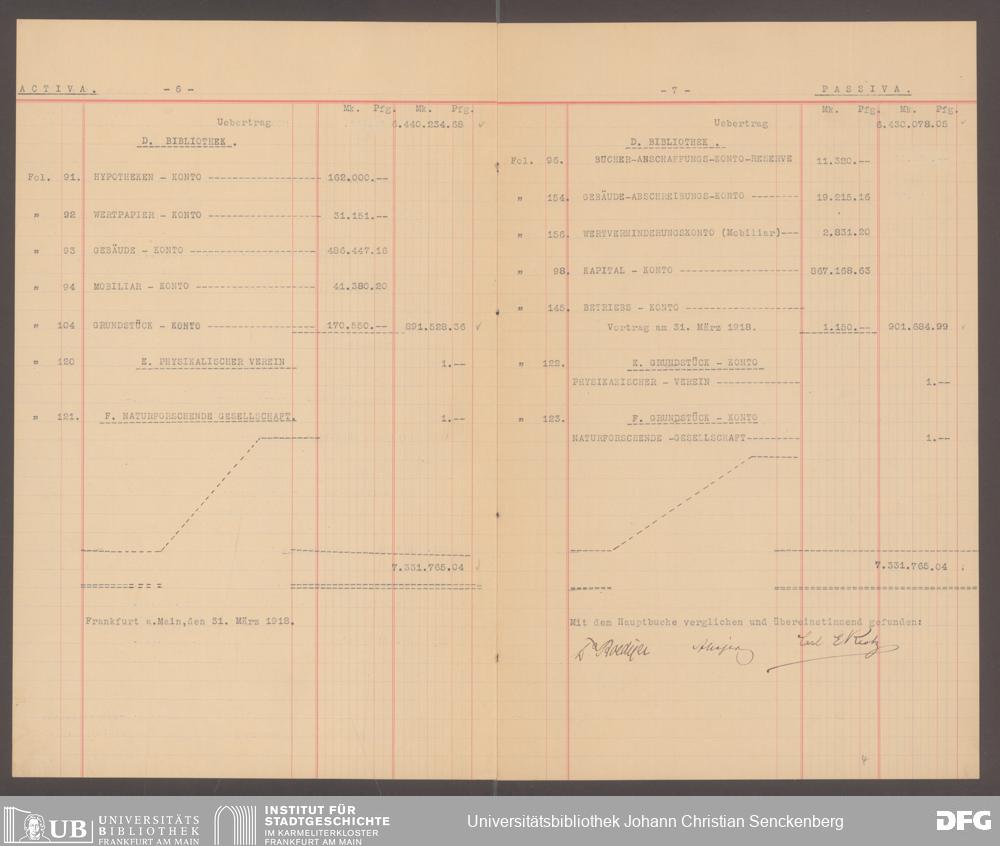 A C T I V A .
- 6 -
Mk. Pfg. Mk. Pfg.
Uebertrag 6.440.234.68
D. BIBLIOTHEK .
Fol. 91. HYPOTHEKEN - KONTO 162.000.--
" 92 WERTPAPIER - KONTO 31.151.--
" 93 GEBÄUDE - KONTO 486.447.16
" 94 MOBILIAR - KONTO 41.380.20
" 104 GRUNDSTÜCK - KONTO 170.550.-- 891.528.36
" 120 E. PHYSIKALISCHER VEREIN 1.--
" 121. F. NATURFORSCHENDE GESELLSCHAFT. 1.--
7.331.765.04
Frankfurt a.Main,den 31. März 1918.
- 7 -
P A S S I V A .
Mk. Pfg. Mk. Pfg.
Uebertrag 6.430.078.05
D. BIBLIOTHEK .
Fol. 96. BÜCHER-ANSCHAFFUNGS-KONTO-RESERVE 11.320.--
" 154. GEBÄUDE-ABSCHREIBUNGS-KONTO 19.215.16
" 156. WERTVERMINDERUNGSKONTO (Mobiliar)--- 2.831.20
" 98. KAPITAL - KONTO 867.168.63
" 145. BETRIEBS - KONTO
Vortrag am 31. März 1918. 1.150.-- 901.684.99
" 122. E. GRUNDSTÜCK - KONTO
PHYSIKALISCHER - VEREIN 1.--
" 123. F. GRUNDSTÜCK - KONTO
NATURFORSCHENDE -GESELLSCHAFT 1.--
7.331.765.04
Mit dem Hauptbuche verglichen und übereinstimmend gefunden:
4
UB UNIVERSITÄTS
BIBLIOTHEK
FRANKFURT AM MAIN
INSTITUT FÜR
STADTGESCHICHTE
IM KARMELITERKLOSTER
FRANKFURT AM MAIN
Universitätsbibliothek Johann Christian Senckenberg
DFG